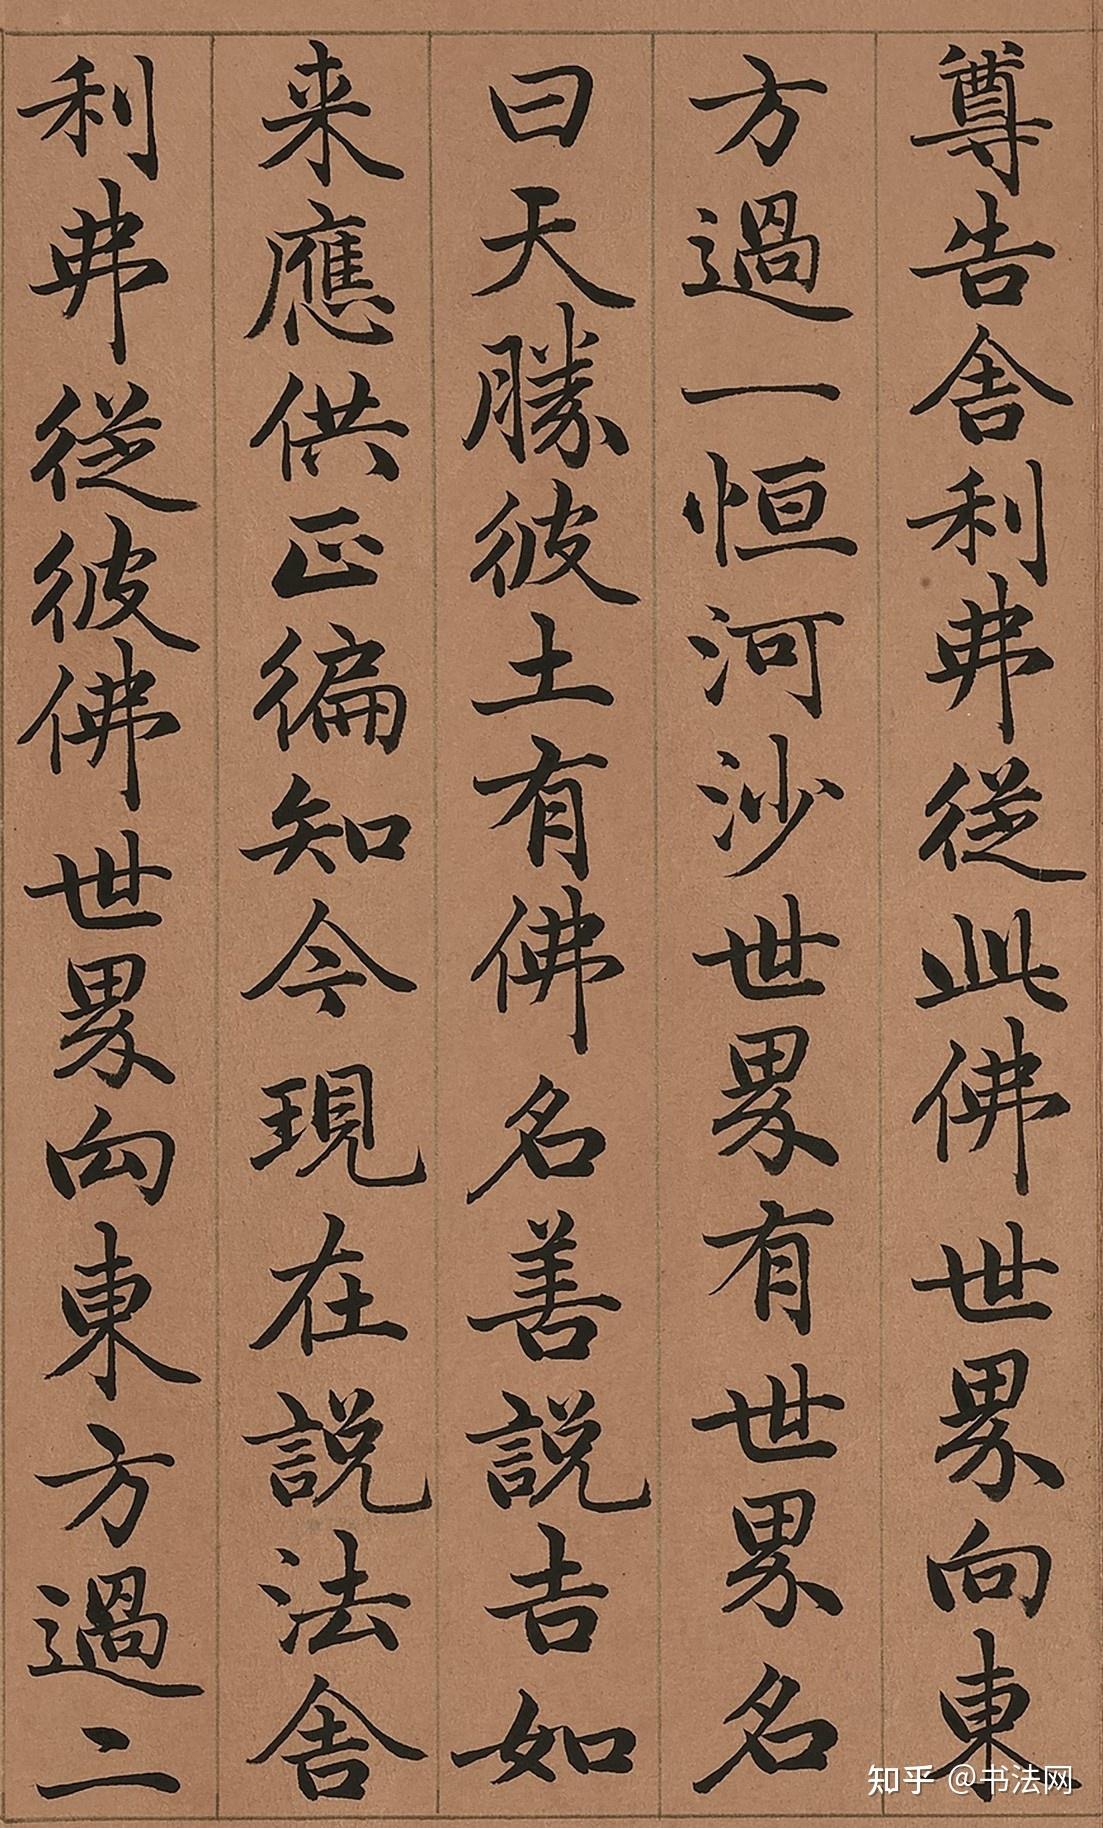 尊告舍利弗從此佛世界向東
方過一恒河沙世界有世界名
曰天勝彼土有佛名善說吉如
来應供正徧知今現在說法舍
利弗從彼佛世界向東方過二
知乎 @书法网